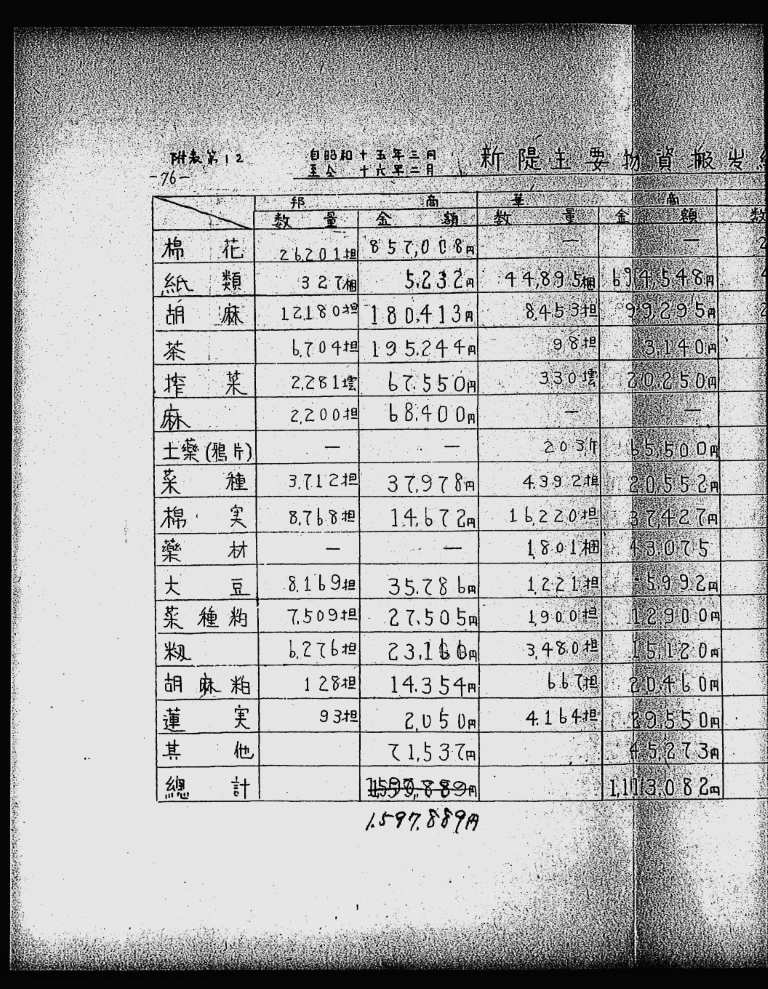 附表第12
自昭和十五年三月
至仝 十六年二月
新隄主要物資搬出
-76-
邦商 華商
数量 金額 数量 金額 数
棉花 26,201担 857,008円 — — 2
紙類 327梱 5,232円 44,895梱 694,548円 4
胡麻 12,180担 180,413円 8,453担 99,295円 2
茶 6,704担 195,244円 98担 3,140円
搾菜 2,281壜 67,550円 330壜 20,250円
麻 2,200担 68,400円 — —
土薬(鴉片) — — 203斤 65,500円
菜種 3,712担 37,978円 4,392担 20,552円
棉実 8,768担 14,672円 16,220担 37,427円
薬材 — — 1,801梱 43,075
大豆 8,169担 35,786円 1,221担 5,992円
菜種粕 7,509担 27,505円 1,900担 12,900円
籾 6,276担 23,166円 3,480担 15,120円
胡麻粕 128担 14,354円 667担 20,460円
蓮実 93担 2,050円 4,164担 29,550円
其他 71,537円 45,273円
總計 1,113,082円
1,597,889円